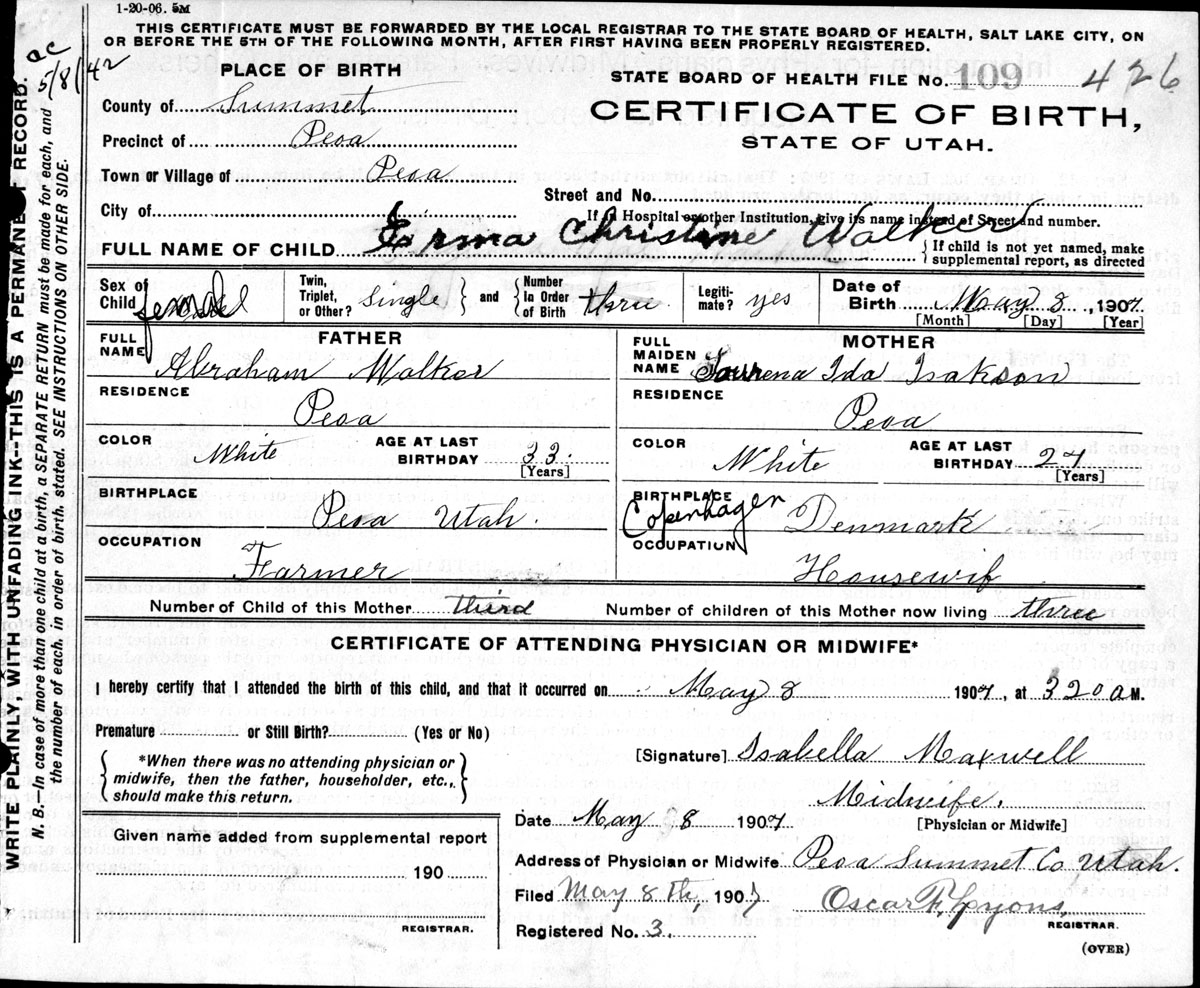 1-20-06. 5M
THIS CERTIFICATE MUST BE FORWARDED BY THE LOCAL REGISTRAR TO THE STATE BOARD OF HEALTH, SALT LAKE CITY, ON
OR BEFORE THE 5TH OF THE FOLLOWING MONTH, AFTER FIRST HAVING BEEN PROPERLY REGISTERED.
5/8/42
WRITE PLAINLY, WITH UNFADING INK--THIS IS A PERMANENT RECORD.
N. B.—In case of more than one child at a birth, a SEPARATE RETURN must be made for each, and
the number of each, in order of birth, stated. SEE INSTRUCTIONS ON OTHER SIDE.
PLACE OF BIRTH
STATE BOARD OF HEALTH FILE No. 109 426
County of Summet
CERTIFICATE OF BIRTH,
Precinct of Peoa
STATE OF UTAH.
Town or Village of Peoa
Street and No.
City of
If in Hospital or other Institution, give its name instead of Street and number.
FULL NAME OF CHILD Erma Christine Walker { If child is not yet named, make
supplemental report, as directed
Sex of Child female
Twin, Triplet, or Other? Single } and { Number in Order of Birth three
Legiti- mate? yes
Date of Birth May 8, 1907
[Month] [Day] [Year]
FATHER
FULL NAME Abraham Walker
RESIDENCE
Peoa
COLOR White AGE AT LAST BIRTHDAY 33.
[Years]
BIRTHPLACE
Peoa Utah.
OCCUPATION
Farmer
MOTHER
FULL MAIDEN NAME Ida Isakson
RESIDENCE
Peoa
COLOR White AGE AT LAST BIRTHDAY 27
[Years]
BIRTHPLACE
Copenhagen Denmark
OCCUPATION
Housewif
Number of Child of this Mother third Number of children of this Mother now living three
CERTIFICATE OF ATTENDING PHYSICIAN OR MIDWIFE*
I hereby certify that I attended the birth of this child, and that it occurred on May 8 1907, at 3 20 a M.
Premature or Still Birth? (Yes or No)
{ *When there was no attending physician or
midwife, then the father, householder, etc.,
should make this return. }
[Signature] Isabella Maxwell
Midwife.
[Physician or Midwife]
Date May 8 1907
Address of Physician or Midwife Peoa Summet Co Utah.
Filed May 8th, 1907 Oscar F. Lyons,
REGISTRAR.
Registered No. 3.
(OVER)
Given name added from supplemental report
190
REGISTRAR.